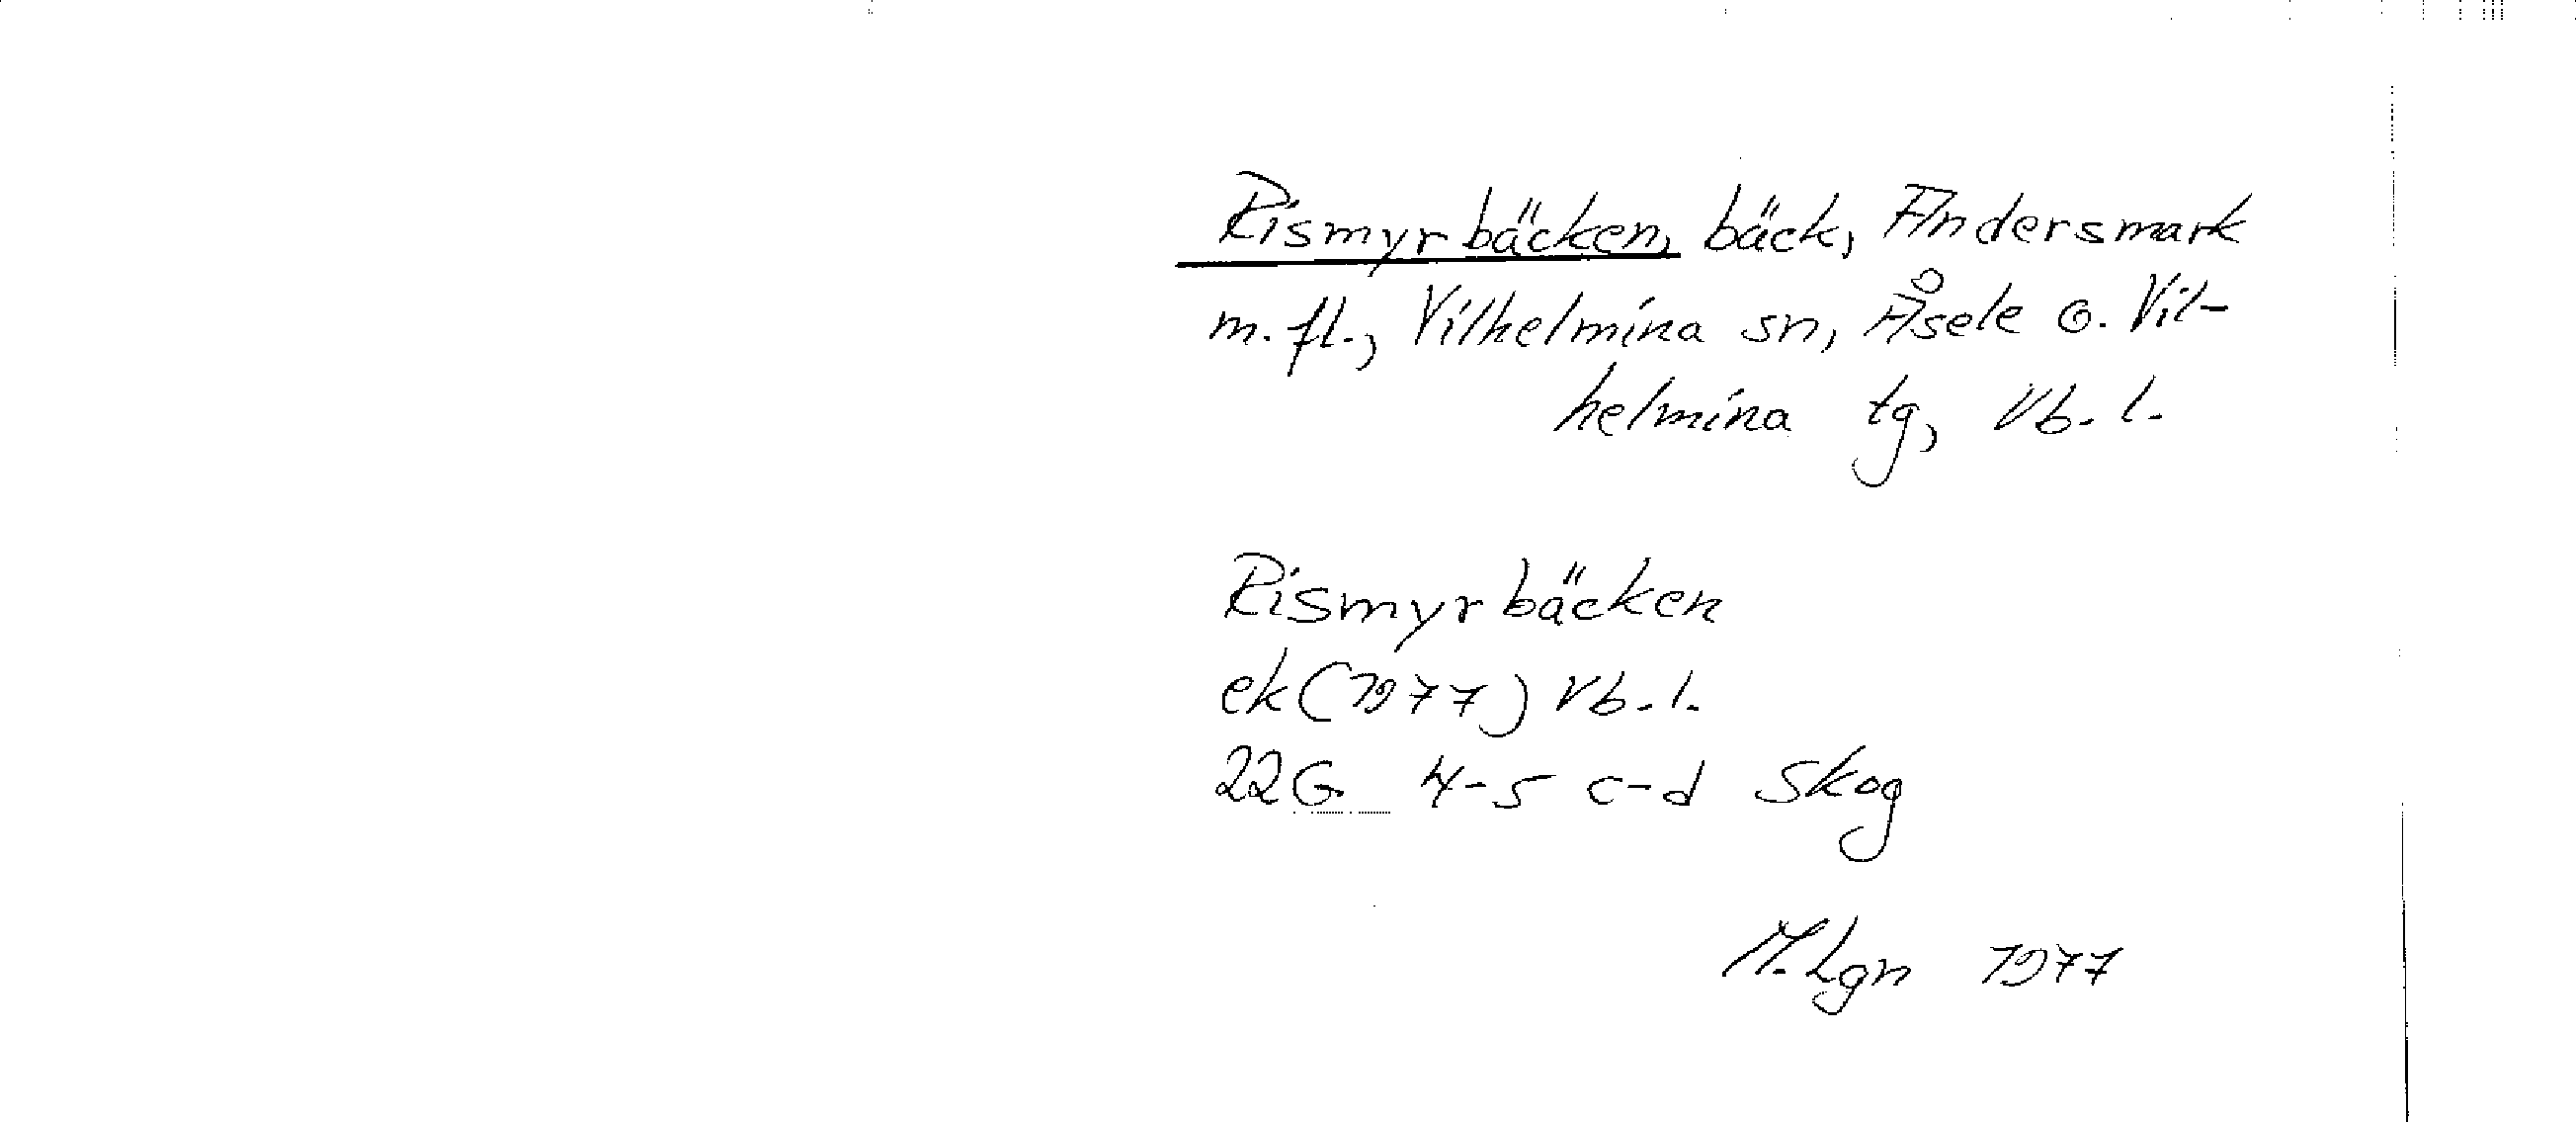 Rismyrbäcken, bäck, Andersmark
m.fl., Vilhelmina sn, Åsele o. Vil-
helmina tg, Vb.l.
Rismyrbäcken
ek (1977) Vb.l.
22G 4-5 c-d Skog
M.Lgn 1977